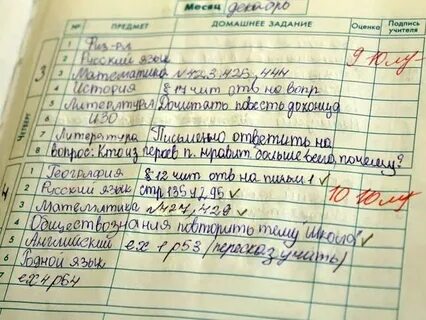 Месяц декабрь
№ ПРЕДМЕТ ДОМАШНЕЕ ЗАДАНИЕ Оценка Подпись учителя
1 Физ-ра
2 Русский язык 9
3 Математика №423, 425, 444
4 История § 14 чит отв на вопр
5 Литература Дочитать повесть до конца
6 ИЗО
7 Литература Письменно ответить на
8 вопрос: Кто из героев п. нравит больше всего, почему?
1 География § 12 чит отв на письм 1 ✓
2 Русский язык стр 135 у 2,95 ✓ 10
3 Математика №427, 429 ✓
4 Обществознания повторить тему "Школа" ✓
5 Английский ex 1 p53 (пересказ учить)
6 Родной язык
7 ex 4 p64